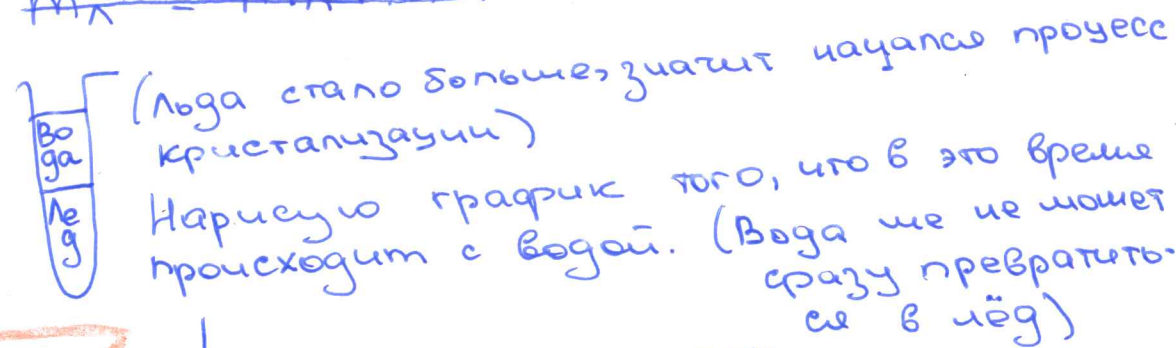 (Льда стало больше, значит начался процесс
кристализации)
Во
да
Ле
д
Нарисую график того, что в это время
происходит с водой. (Вода же не может
сразу превратить-
ся в лёд)